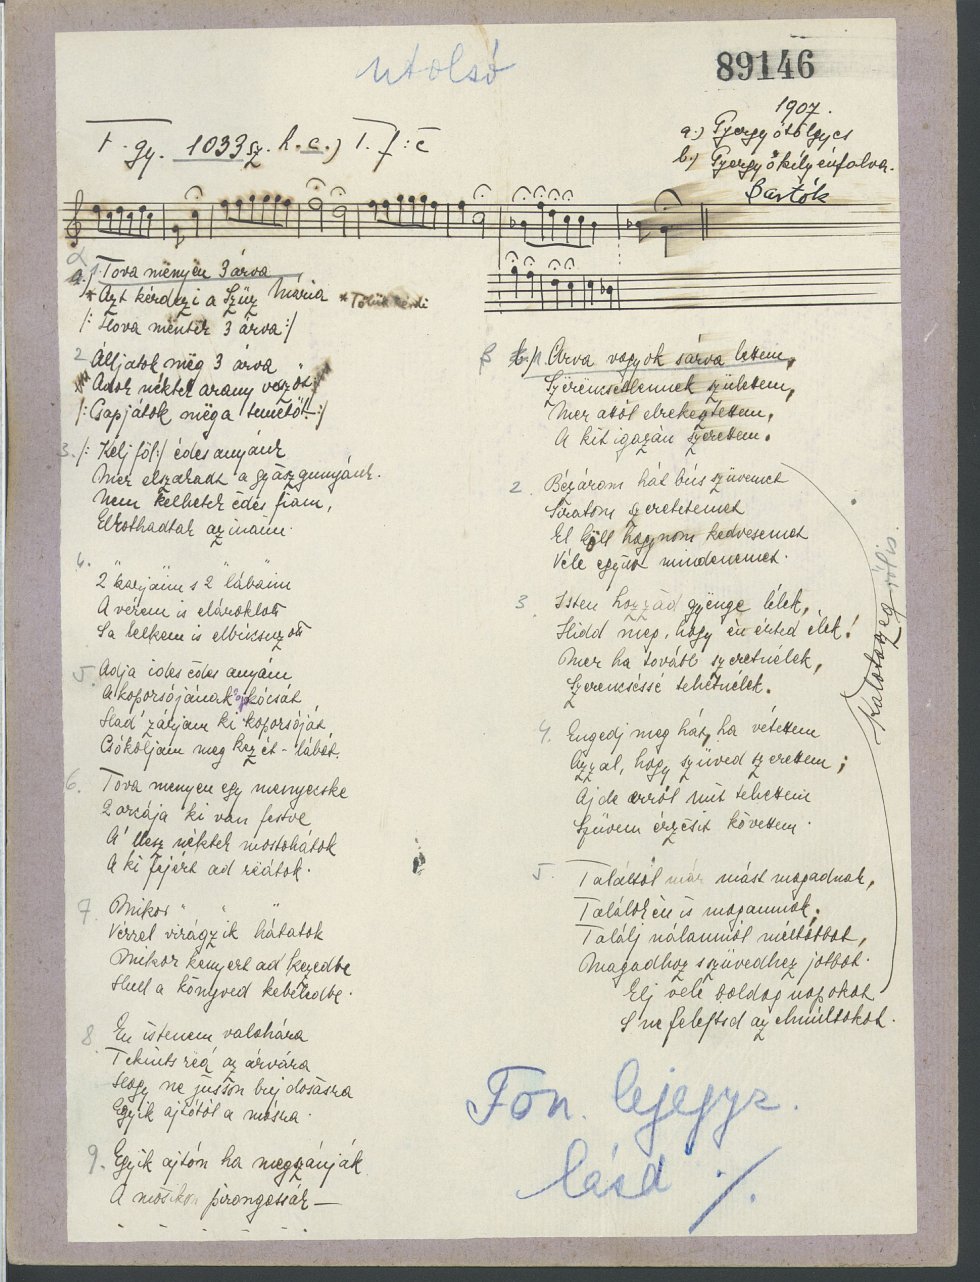 utolsó
89146
1907.
a.) Gyergyótölgyes
b.) Gyergyókilyénfalva.
Bartók
F. gy. 1033 sz. h. c.) T. f: c̄
a.) 1. Tova mënyën 3 árva
* Azt kérdezi a Szüz Mária
/: Hova mëntëk 3 árva :/
2 Álljatok mëg 3 árva
Adok néktek arany veszőt
/: Csapjátok mëg a temetőt :/
3. /: Kelj föl :/ édes anyánk
Mer elszakadt a gyászgunyánk.
Nem kelhetek édes fiam,
Elrothadtak az inaim
4.
2 karjaim s 2 lábaim
A vérem is elároklott
Sa lelkem is elbúcsuzott
5. Adja ides édes anyám
A koporsójának kócsát
Had zárjam ki koporsóját
Csókoljam meg kezét-lábát.
6. Tova menyen egy menyecske
2 orcája ki van festve
A lesz néktek mostohátok
A ki fejért ad reátok.
7. Mikor " " "
Vérrel virágzik hátatok
Mikor kenyert ad kezedbe
Hull a könyved kebeledbe.
8 Én istenem valahára
Tekints reá az árvára
Hogy ne jusson bujdosásra
Egyik ajtótól a másra.
9. Egyik ajtón ha megszánják
A másikon pirongassák —
β b.) 1. Árva vagyok sárva lettem,
Szërëncsétlennek születtem,
Mer attól elrekesztettem,
A kit igazán szerettem.
2. Bézárom hát bús szüvemet
Siratom szeretetemet
El köll hagynom kedvesemet
Véle együtt mindenemet.
3. Isten hozzád gyönge lélek,
Hidd mëg, hogy én érted élek!
Mer ha tovább szeretnélek,
Szerencséssé tehetnélek.
4. Engedj meg hát, ha vétettem
Azzal, hogy szüved szerettem;
Ajde arról mit tehettem
Szüvem érzésit követtem.
5. Találtál már mást magadnak,
Találok én is magamnak.
Találj nálamnál méltóbbat,
Magadhoz s szüvedhez jobbat.
Élj vele boldog napokat
S ne felejtsd az elmúltakat.
Kalotaszeg-ről is
Fon. lejegyz.
lásd ./.